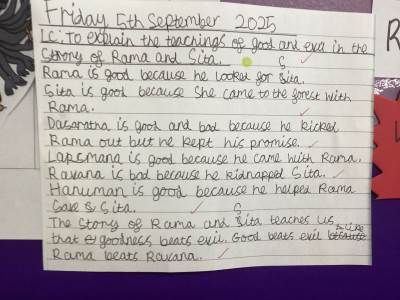 Friday 5th September 2025
LC: To explain the teachings of good and evil in the
Strory of Rama and Sita.
S
Rama is good because he looked for sita.
Sita is good because She came to the forest with
Rama.
Dasaratha is good and bad because he kicked
Rama out but he kept his promise.
Lapsmana is good because he came with Rama.
Ravana is bad because he kidnapped Sita.
Hanuman is good because he helped Rama
Sita.
S
The Story of Rama and sita teaches us
that goodness beats evil. Good beats evil because like
Rama beats Ravana.
R